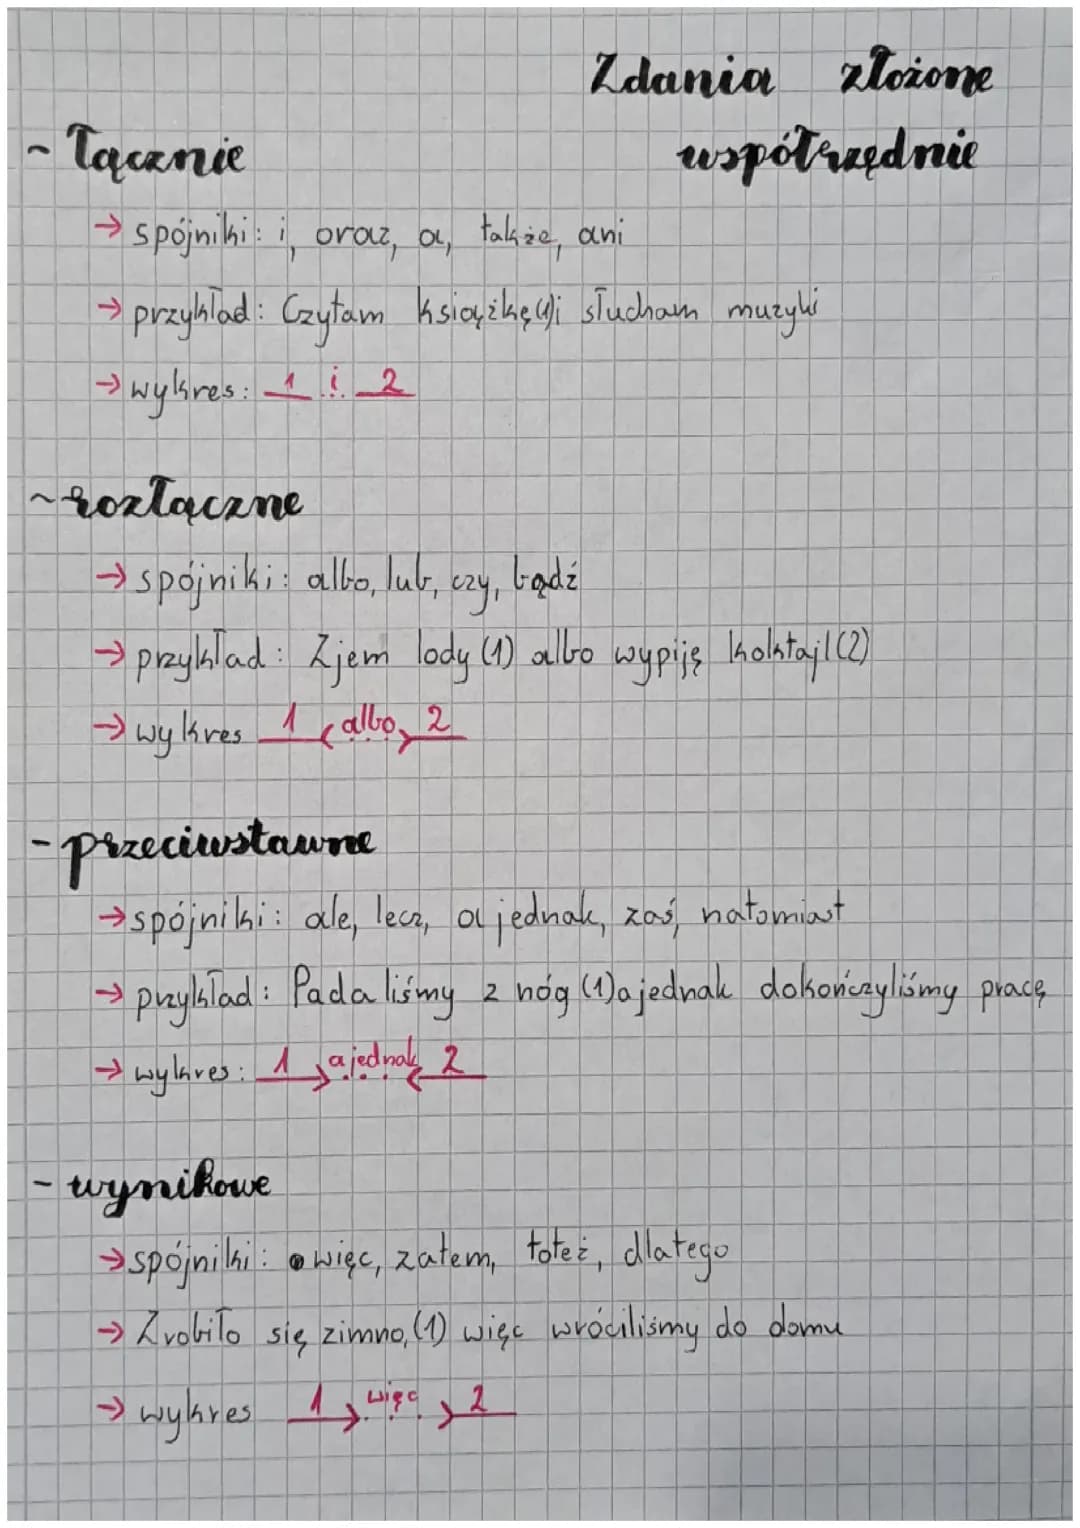 Zdania złożone
współrzędnie
- łącznie
→ spójniki: i, oraz, a, także, ani
→ przykład: Czytam książkę(1)i słucham muzyki
→ wykres: 1 i 2
~rozłączne
→ spójniki: albo, lub, czy, bądź
→ przykład: Zjem lody (1) albo wypiję koktajl(2)
→ wykres 1 < albo > 2
- przeciwstawne
→ spójniki: ale, lecz, a jednak, zaś, natomiast
→ przykład: Padaliśmy z nóg (1)a jednak dokończyliśmy pracę
→ wykres: 1 > a jednak < 2
- wynikowe
→ spójniki: więc, zatem, toteż, dlatego
→ Zrobiło się zimno,(1) więc wróciliśmy do domu
→ wykres 1 > więc > 2